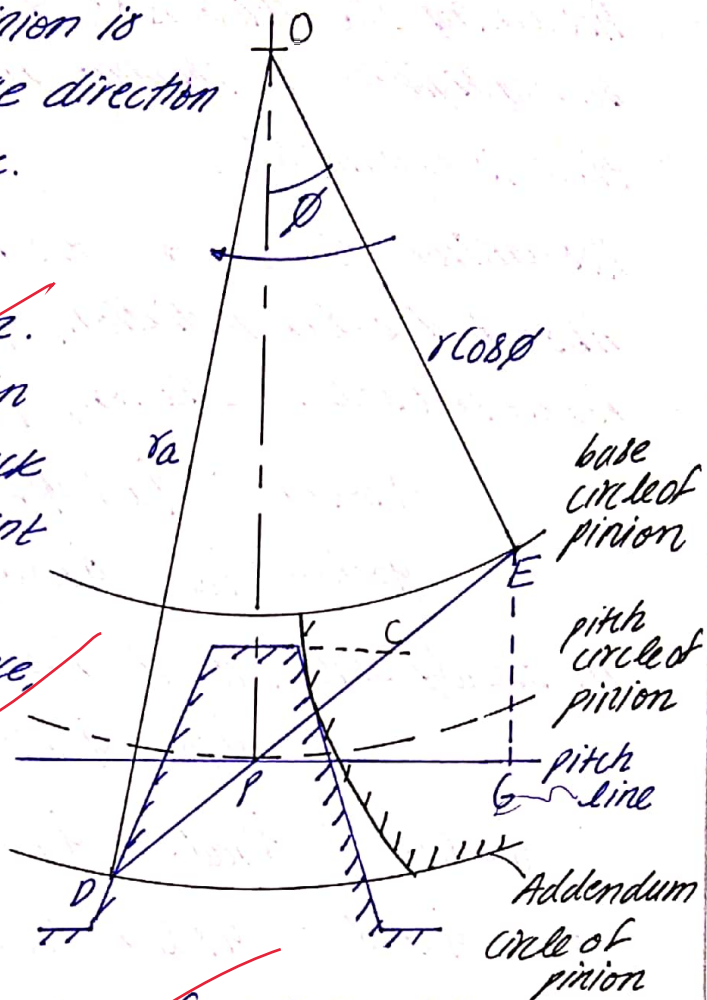 nion is
O
e direction
φ
rCosφ
ra
base
circle of
pinion
E
pitch
circle of
pinion
C
P
G
pitch
line
D
Addendum
circle of
pinion